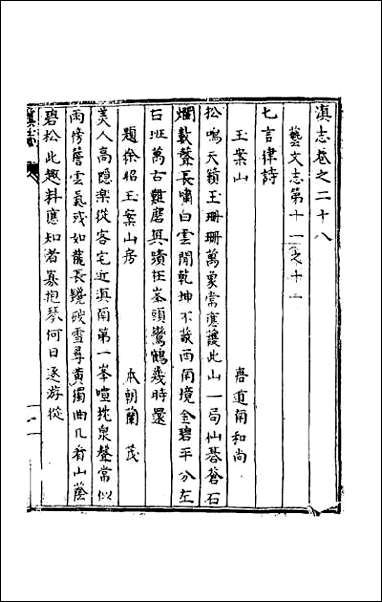 滇志卷之二十八
藝文志第十一之十一
七言律詩
玉案山　唐道南和尚
松鳴天籟玉珊珊萬象常應護此山一局仙碁蒼石
爛數聲長嘯白雲閒乾坤不蔽西南境金碧平分左
右班萬古難磨真蹟在峯頭鸞鶴幾時還
題徐招玉案山房　本朝蘭茂
美人高隱樂從容宅近滇南第一峯喧枕泉聲常似
雨傍簷雲氣或如龍長鑱破雪尋黃獨曲几看山蔭
碧松此趣料應知者寡抱琴何日逐游從